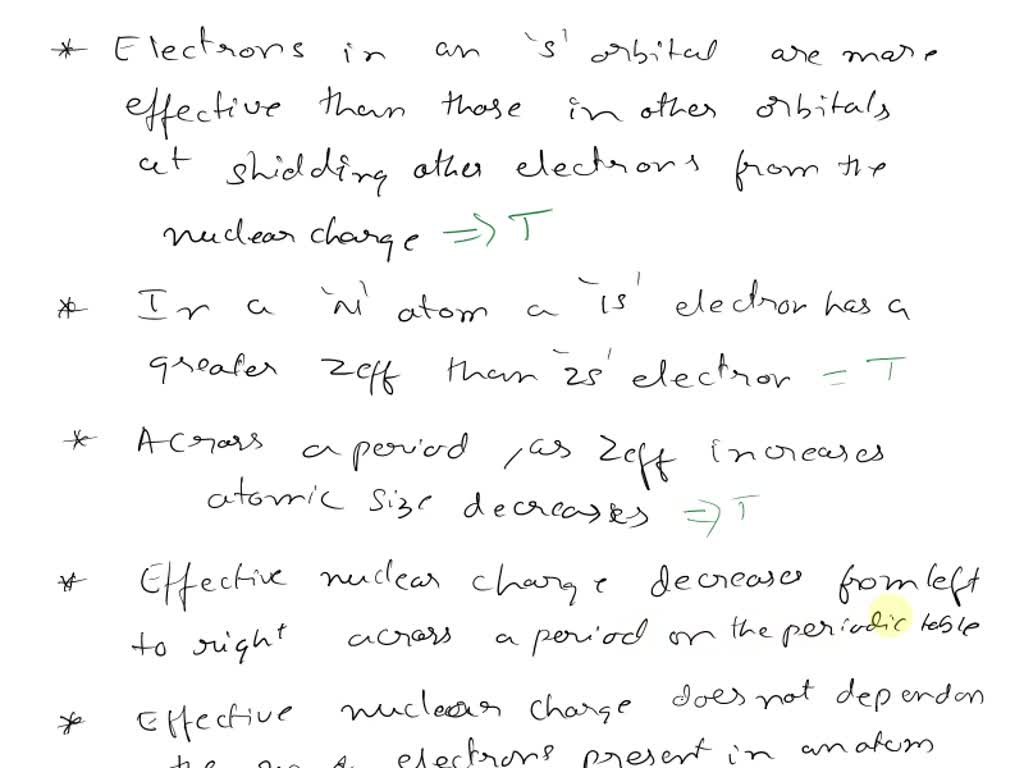 * Electrons in an 's' orbital are more
effective than those in other orbitals
at shidding other electrons from the
nuclear charge => T
* In a 'N' atom a '1s' electron has a
greater Zeff than '2s' electron = T
* Across a period, as Zeff increases
atomic size decreases => T
* Effective nuclear charge decreases from left
to right across a period on the periodic table
* Effective nuclear charge does not depend on
the electrons present in an atom